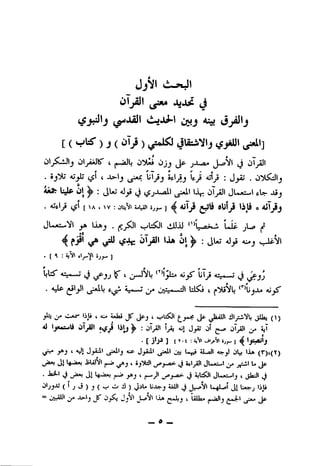 البحث الأول
في تحديد معنى القرآن
والفرق بينه وبين الحديث القدسي والنبوي
[المعنى اللغوي والاشتقاقي لكلمتي ( قرآن ) و ( كتاب ) ]
القرآن في الأصل مصدر على وزن فُعْلان بالضم ، كالغفران والشكران
والتكلان . تقول : قرأته قرءاً وقراءة وقرآناً بمعنى واحد ، أي تلوته تلاوة .
وقد جاء استعمال القرآن بهذا المعنى المصدري في قوله تعالى : ﴿ إنّ علينا جمعَهُ
وقرآنَه ، فإذا قرأناه فاتبع قرآنه ﴾ [ سورة القيامة الآيتان : ١٧ ، ١٨ ] أي قراءته .
ثم صار عَلَماً شخصياً(١) لذلك الكتاب الكريم . وهذا هو الاستعمال
الأغلب ومنه قوله تعالى : ﴿ إنّ هذا القرآن يهدي للتي هي أقْوَم ﴾
[ سورة الإسراء الآية : ٩ ] .
رُوعِيَ في تسميته قرآناً كونه متلوّاً(٢) بالألسن ، كما روعي في تسميته كتاباً
كونه مدوناً(٣) بالأقلام ، فكلتا التسميتين من تسمية شيء بالمعنى الواقع عليه .
(١) يطلق بالاشتراك اللفظي على مجموع الكتاب ، وعلى كل قطعة منه ، فإذا سمعت من يتلو
آية من القرآن صح أن تقول إنه يقرأ القرآن : ﴿ وإذا قُرِئ القرآن فاستمعوا له
وأنصتوا ﴾ [ سورة الأعراف الآية : ٢٠٤ ] [ دراز ] .
(٢)،(٣) هذا بيان لوجه الصلة فيهما بين المعنى المنقول عنه والمعنى المنقول إليه ، وهو مبني
على ما اشتهر من استعمال القراءة في خصوص التلاوة ، وهي ضم الألفاظ بعضها إلى بعض
في النطق ، واستعمال الكتابة في خصوص الرسم ، وهو ضم بعضها إلى بعض في الخط .
فإذا رجعنا إلى أصلهما الأصيل في اللغة وجدنا مادتي ( ك ت ب ) و ( ق ر أ ) تدوران
على معنى الجمع والضم مطلقاً ، وبلمح هذا الأصل الأول يكون كل واحد من اللقبين =
- ٥ -